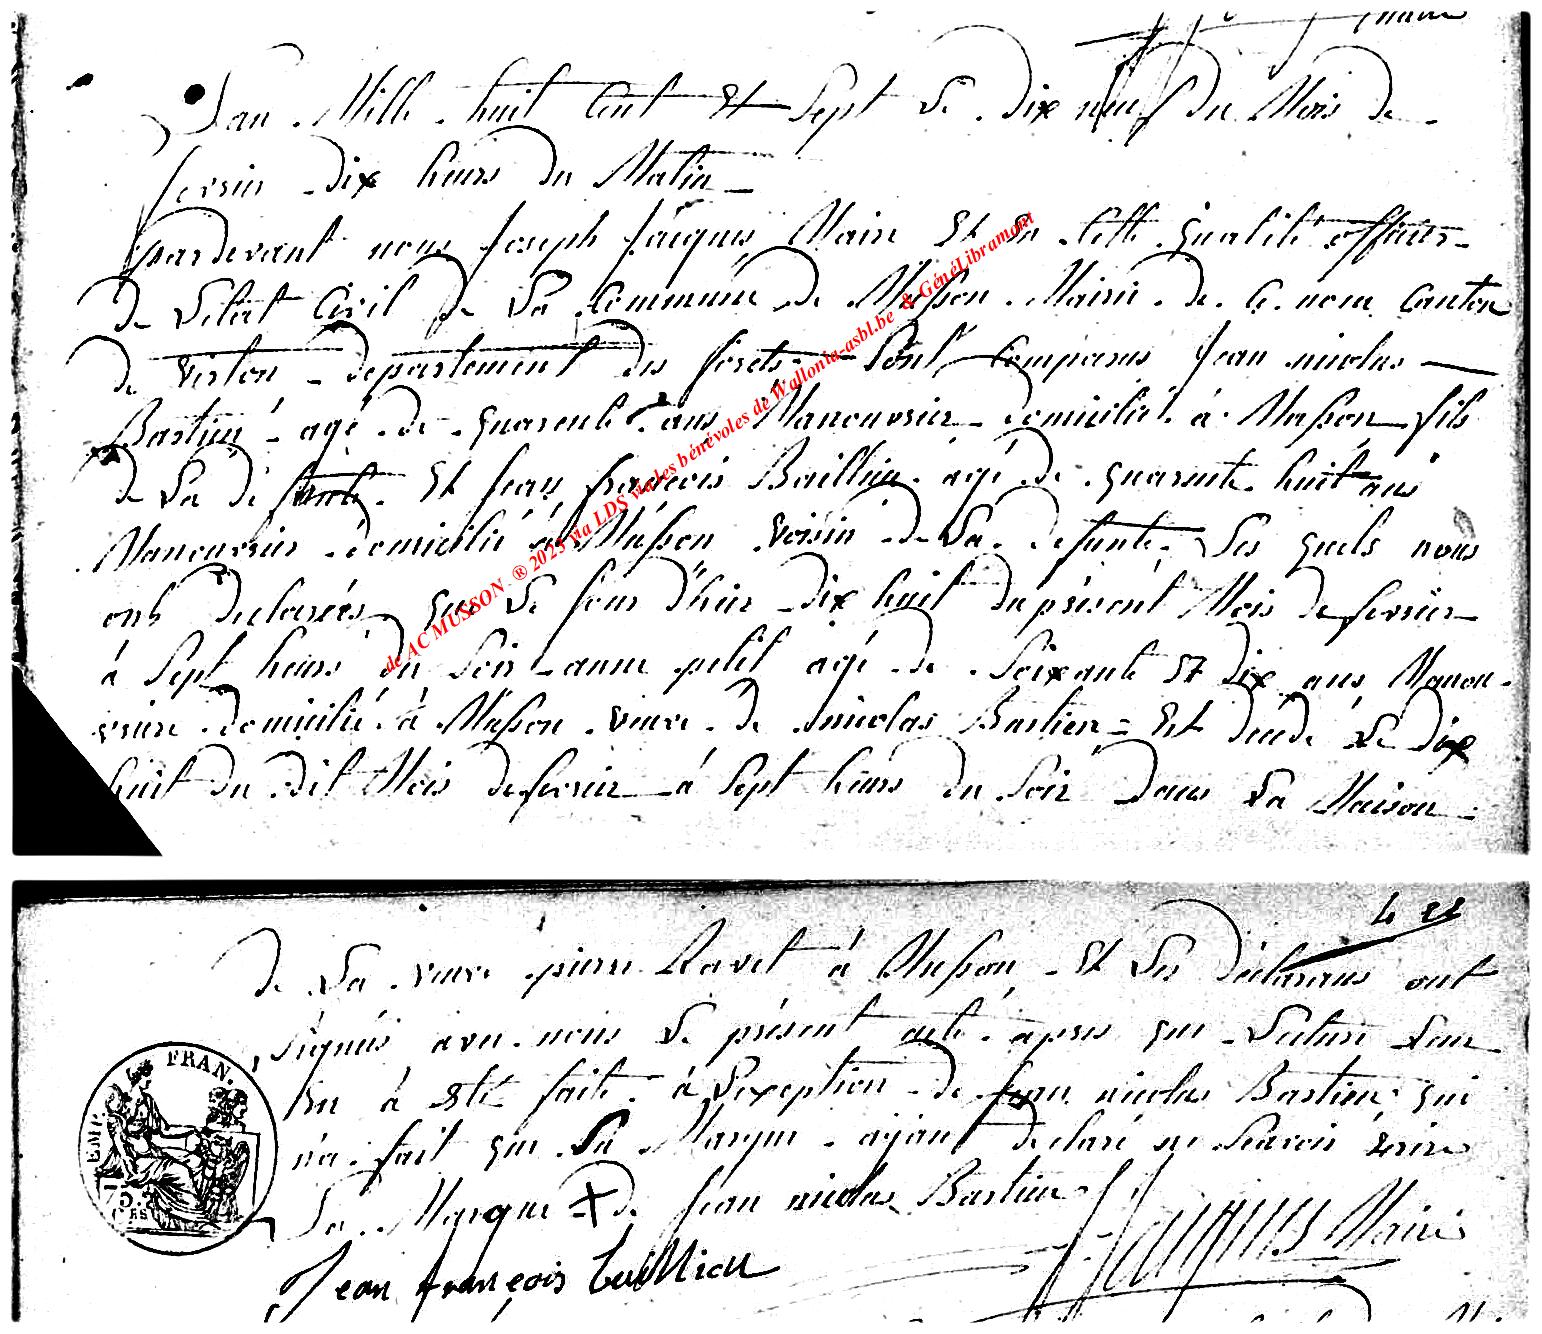 L'an Mille huit Cent Et Sept Le dix neuf du Mois de
fevrier dix heurs du Matin
pardevant nous Joseph Jâcques Maire Et En Cette qualité officier
de Letat Civil de La Commune de Musson Mairie de Ce nom Canton
de virton departement des forets Sont Comparus Jean nicolas
Bastien agé de quarente ans Manouvrier domicilié à Musson fils
de La défunte Et Jean françois Baillieu agé de quarente huit ans
Manouvrier domicilié à Musson voisin de La defunte Les quels nous
ont declarées que Le Jour d'hier dix huit du présent Mois de fevrier
à Sept heurs du Soir anne petit agé de Soixante Et dix ans Manou-
vriere domicilié à Musson veuve de nicolas Bastien Est décédé Le dix
huit du dit Mois de fevrier à Sept heurs du Soir dans La Maison
4
de La veuve pierre Ravet à Musson Et Les déclarans ont
signés avec nous Le présent acte après que Lecture Leur
En à Eté faite à L'exeption de Jean nicolas Bastien qui
n'a fait que Sa Marque ajant declaré ne Scavoir écrire
La Marque X de Jean nicolas Bastien
Jacques Maire
Jean françois
EMP. FRAN.
de AC MUSSON ® 2023 via LDS via les bénévoles de Wallonia-asbl.be & GénéLibramont